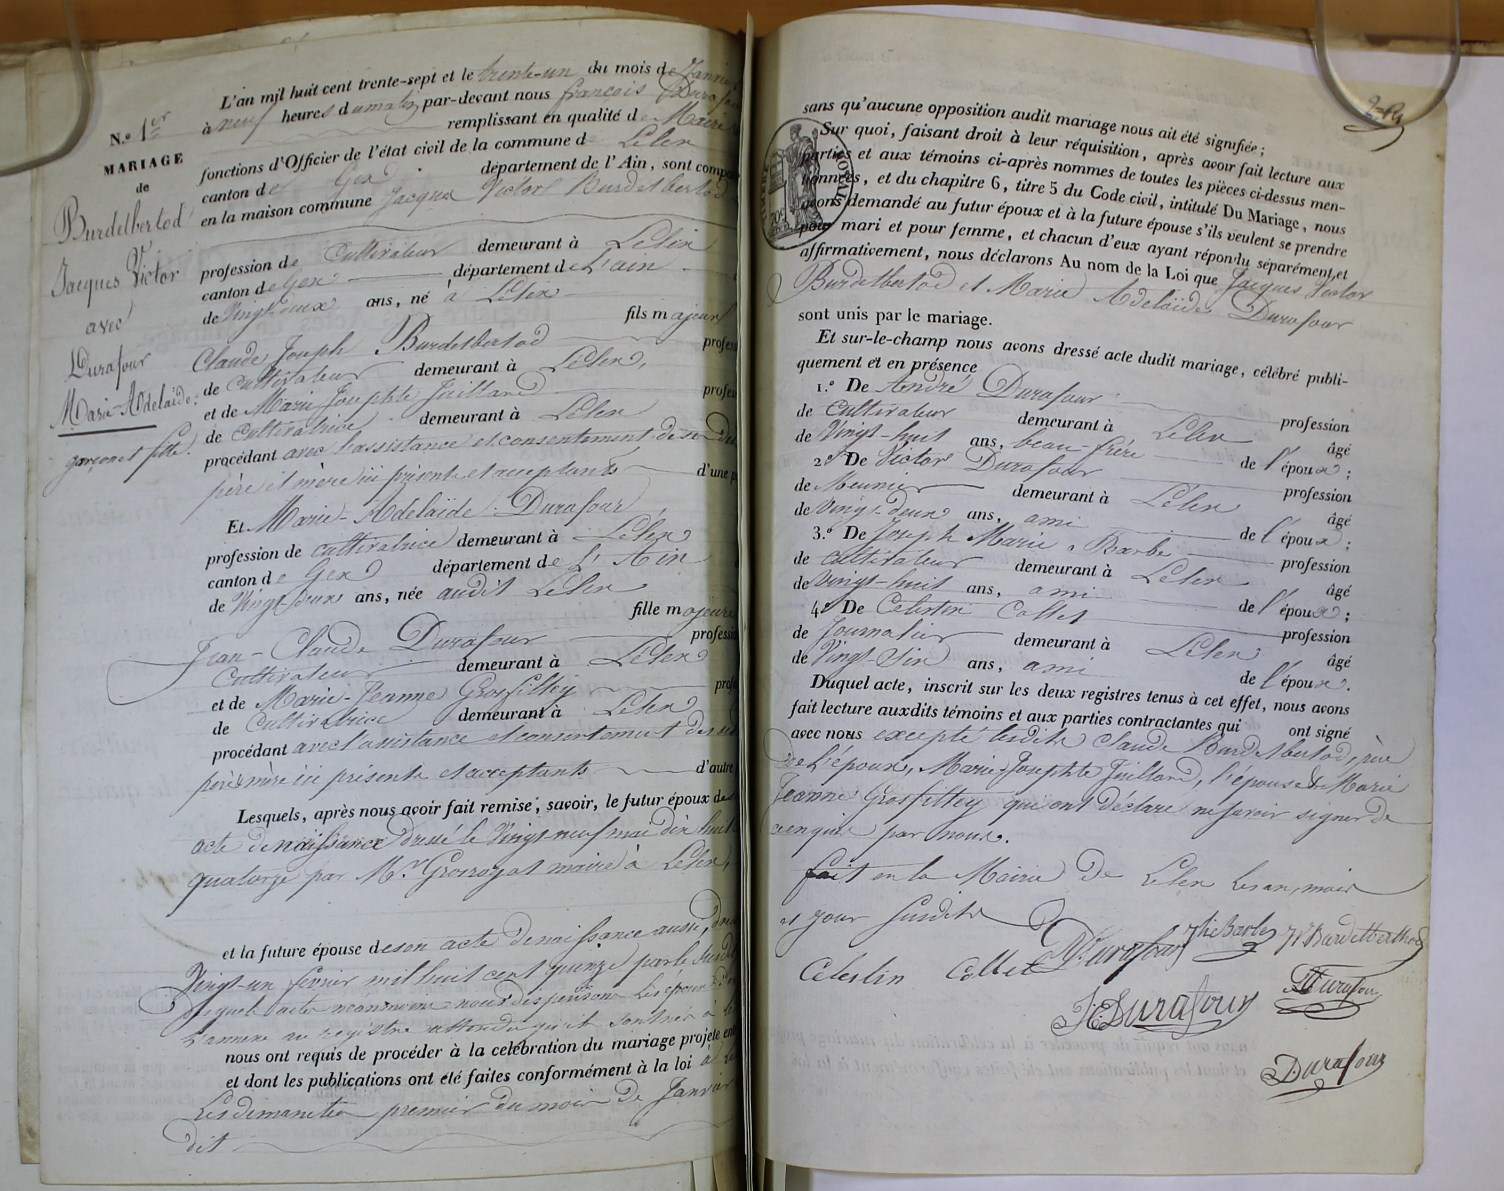 N.º 1er
MARIAGE
de
Burdelbertod
Jacques Victor
avec
Durafour
Marie-Adelaïde.
garçon et fille.
L'an mil huit cent trente-sept et le trente-un du mois de Janvier
à neuf heures du matin par-devant nous françois Durafour
remplissant en qualité de Maire
fonctions d'Officier de l'état civil de la commune de Lelex
canton de Gex département de l'Ain, sont comp
en la maison commune Jacques Victor Burdetbertod
profession de Cultivateur demeurant à Lelex
canton de Gex département de L'ain
de Vingt deux ans, né à Lelex
fils majeur
Claude Joseph Burdetbertod profess
de Cultivateur demeurant à Lelex,
et de Marie Josephte Juilland profess
de Cultivatrice demeurant à Lelex
procédant avec l'assistance et consentement de ses dits
père et mère ici présents et acceptants d'une p
Et Marie-Adelaïde Durafour
profession de cultivatrice demeurant à Lelex
canton de Gex département de L'Ain
de Vingt-deux ans, née audit Lelex
fille majeure
Jean-Claude Durafour professi
Cultivateur demeurant à Lelex
et de Marie-Jeanne Grosfilley profe
de Cultivatrice demeurant à Lelex
procédant avec l'assistance et consentement de ses
père & mère ici présents et acceptants d'autre
Lesquels, après nous avoir fait remise, savoir, le futur époux de
acte de naissance dressé le Vingt neuf mai dix huit
quatorze par Mr Grosroyat maire à Lelex,
et la future épouse de son acte de naissance aussi
Vingt-un février mil huit cent quinze par le susdit
lesquels actes néanmoins nous dispensons les époux
L'annexe au registre attendu qu'ils sont nés à
nous ont requis de procéder à la célébration du mariage projeté ent
et dont les publications ont été faites conformément à la loi à
Les dimanches premier du mois de Janvier
dit
sans qu'aucune opposition audit mariage nous ait été signifiée;
Sur quoi, faisant droit à leur réquisition, après avoir fait lecture aux
parties et aux témoins ci-après nommes de toutes les pièces ci-dessus men-
tionnées, et du chapitre 6, titre 5 du Code civil, intitulé Du Mariage, nous
avons demandé au futur époux et à la future épouse s'ils veulent se prendre
pour mari et pour femme, et chacun d'eux ayant répondu séparément et
affirmativement, nous déclarons Au nom de la Loi que Jacques Victor
Burdetbertod et Marie Adelaïde Durafour
sont unis par le mariage.
Et sur-le-champ nous avons dressé acte dudit mariage, célébré publi-
quement et en présence
1.º De André Durafour profession
de Cultivateur demeurant à Lelex âgé
de Vingt-huit ans, beau-frère de l'époux;
2.º De Victor Durafour profession
de Meunier demeurant à Lelex âgé
de Vingt-deux ans, ami de l'époux;
3.º De Joseph Marie Barbe profession
de cultivateur demeurant à Lelex âgé
de Vingt-huit ans, ami de l'époux;
4.º De Celestin Collet profession
de Journalier demeurant à Lelex âgé
de Vingt-Six ans, ami de l'époux.
Duquel acte, inscrit sur les deux registres tenus à cet effet, nous avons
fait lecture auxdits témoins et aux parties contractantes qui ont signé
avec nous excepté lesdits Claude Burdetbertod, père
de l'époux, Marie Josephte Juilland, l'épouse & Marie
Jeanne Grosfilley qui ont déclaré ne savoir signer de
ce enquis par nous.
fait en la Mairie de Lelex les an, mois
et jour susdits
Celestin Collet Vr. Durafour Barbe Jr Burdetberthod
JC Durafour Durafour
Durafour